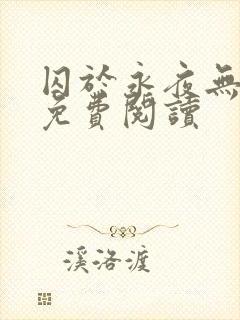 囚於永夜無
免費閱讀
溪洛渡